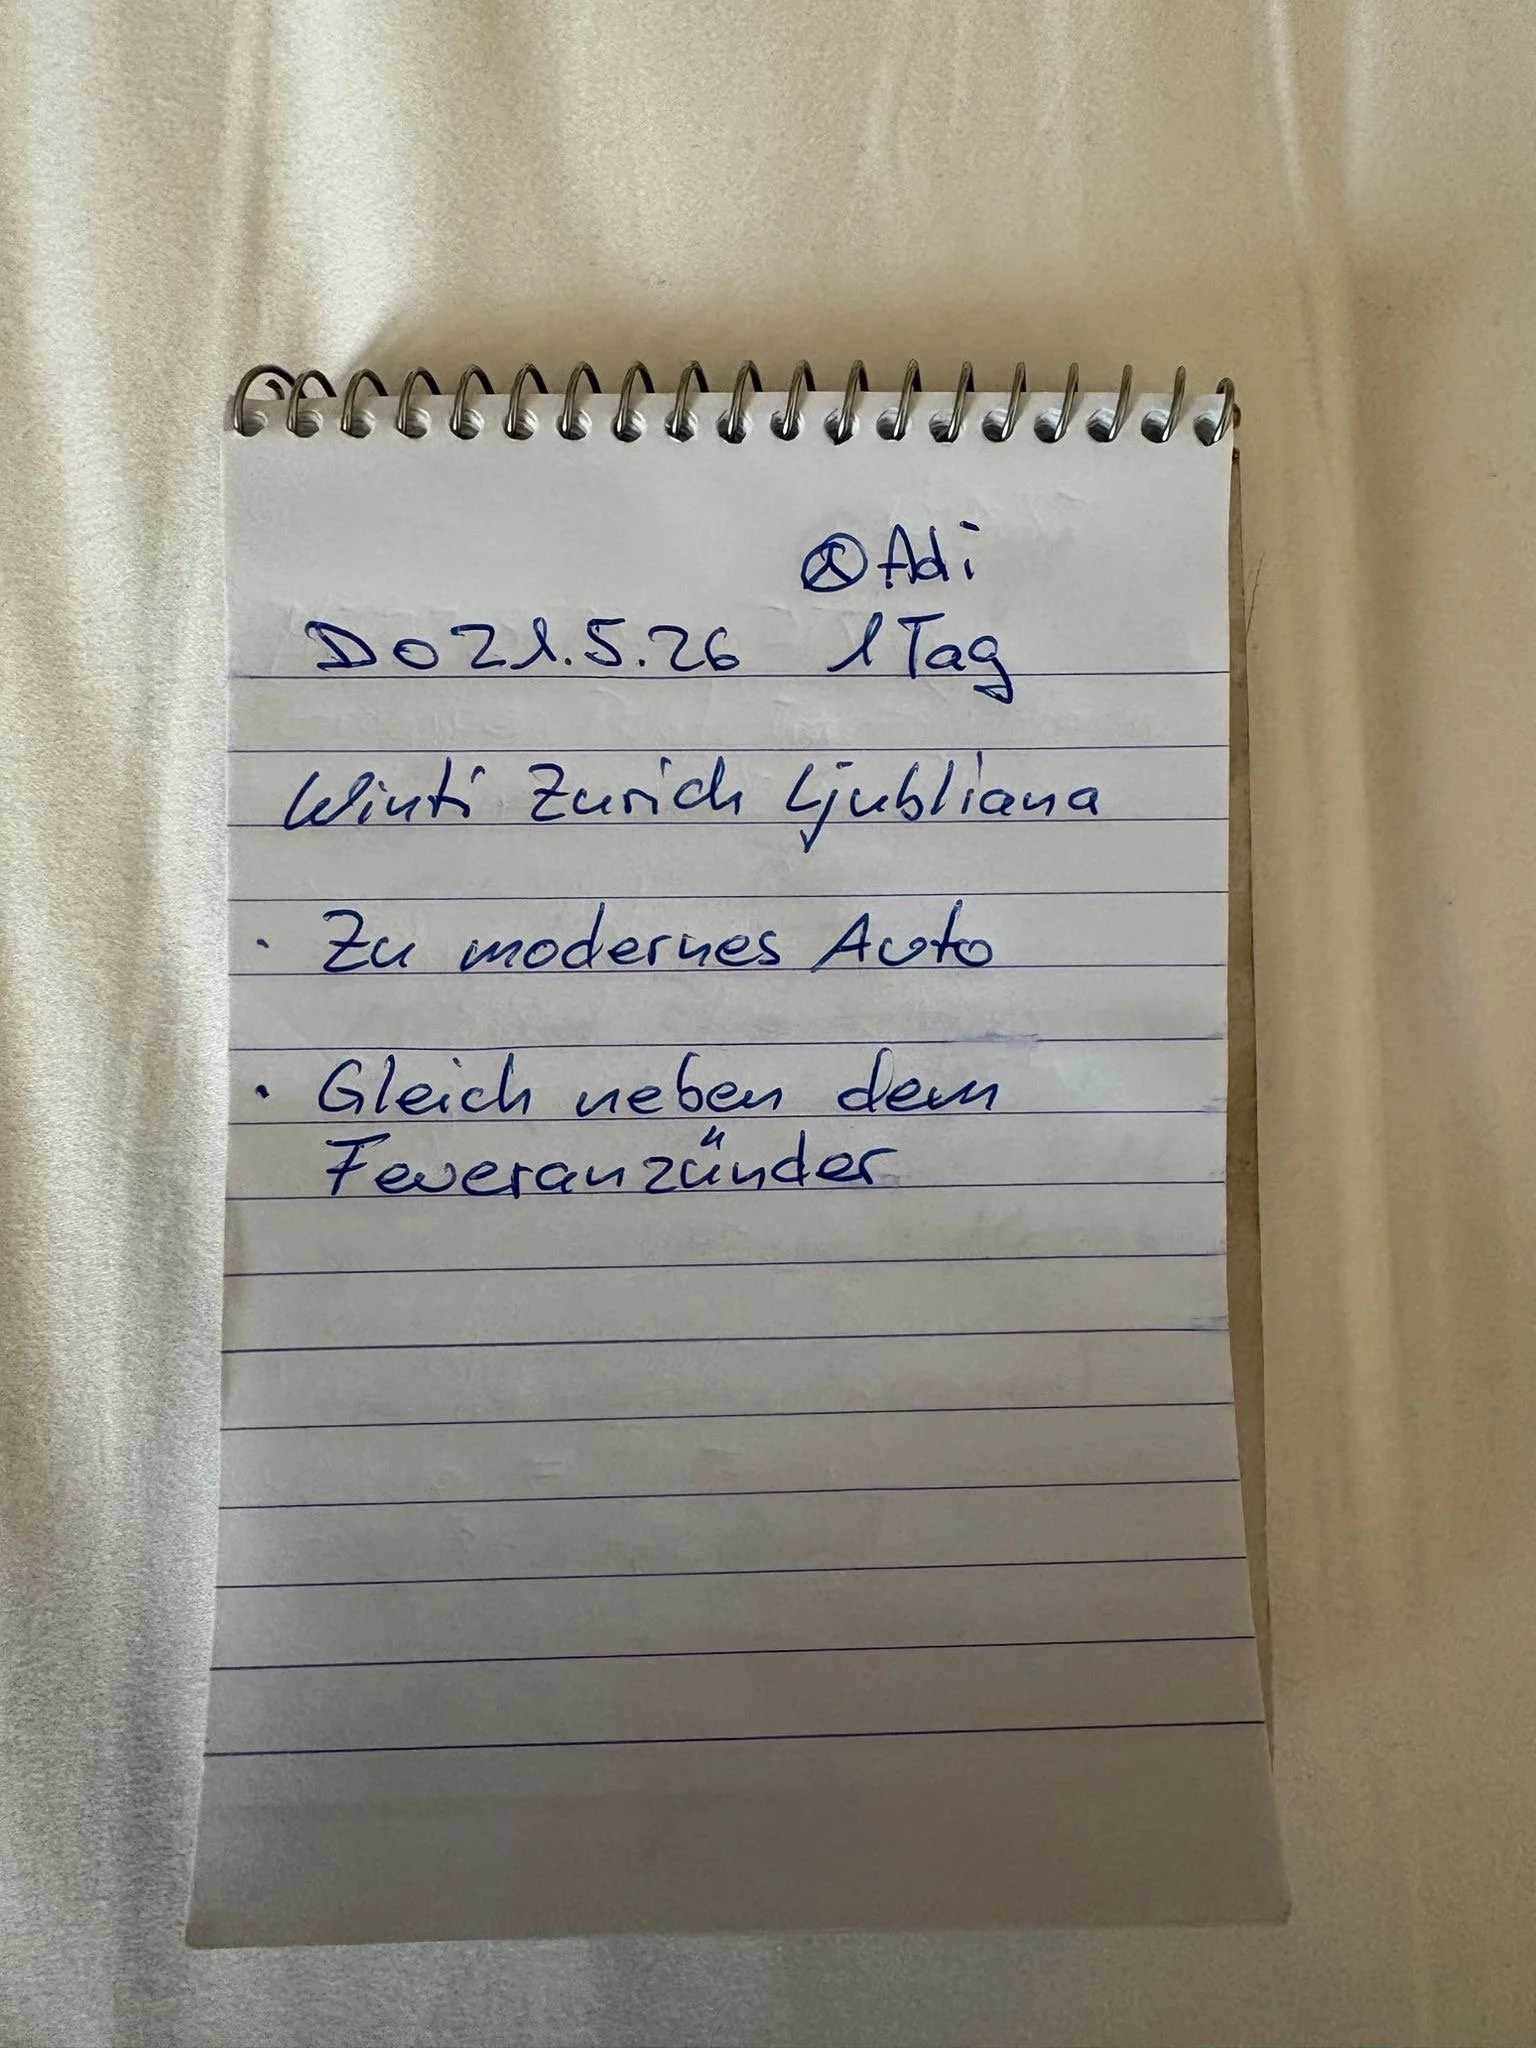 Adi
Do 21.5.26 1 Tag
Winti Zurich Ljubliana
· Zu modernes Auto
· Gleich neben dem
Feueranzünder